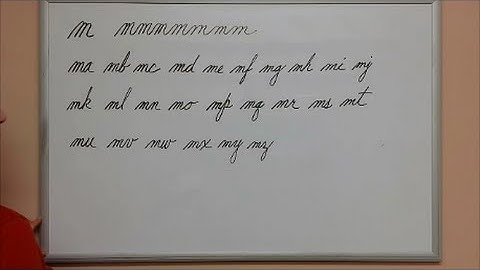 m mmmmmmm
ma mb mc md me mf mg mh mi mj
mk ml mn mo mp mq mr ms mt
mu mv mw mx my mz